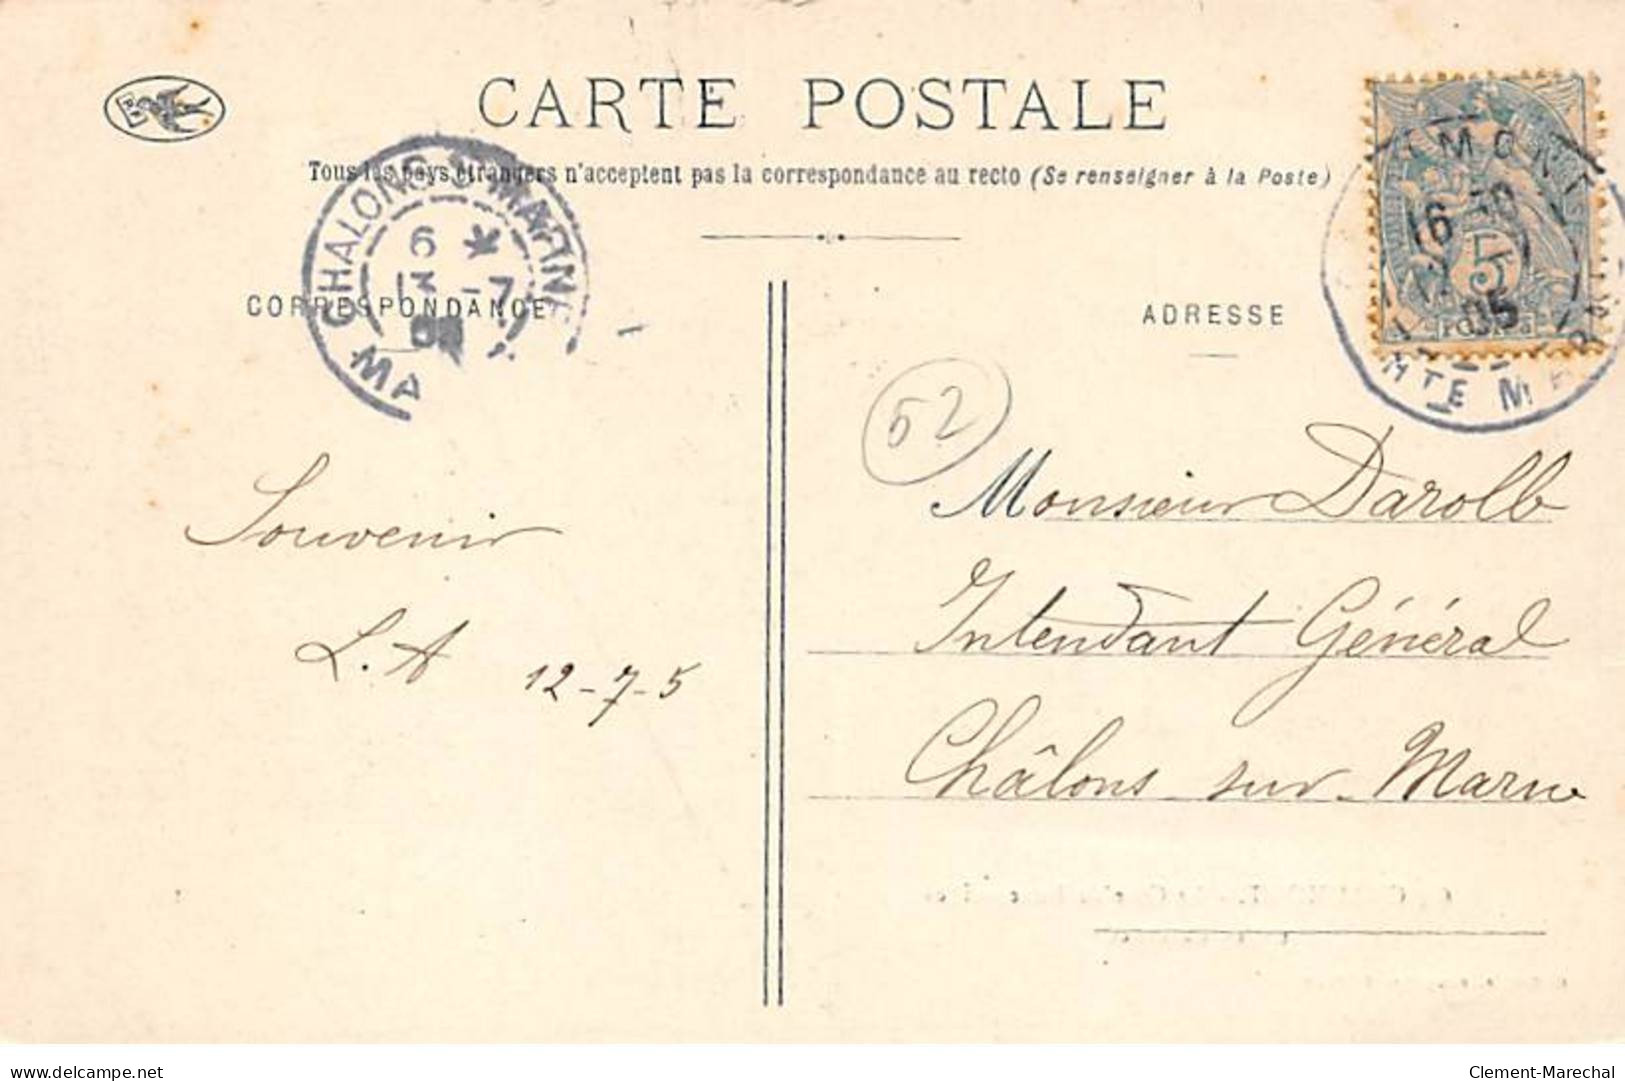 CARTE POSTALE
Tous les pays étrangers n'acceptent pas la correspondance au recto (Se renseigner à la Poste)
CHALONS S MARNE
6
13 -7
05
MA
MONT
16 30
05
HTE MAR
5
CORRESPONDANCE
ADRESSE
52
Souvenir
L. A 12-7-5
Monsieur Darolb
Intendant Général
Châlons sur Marne
delcampe.net
Clement-Marechal